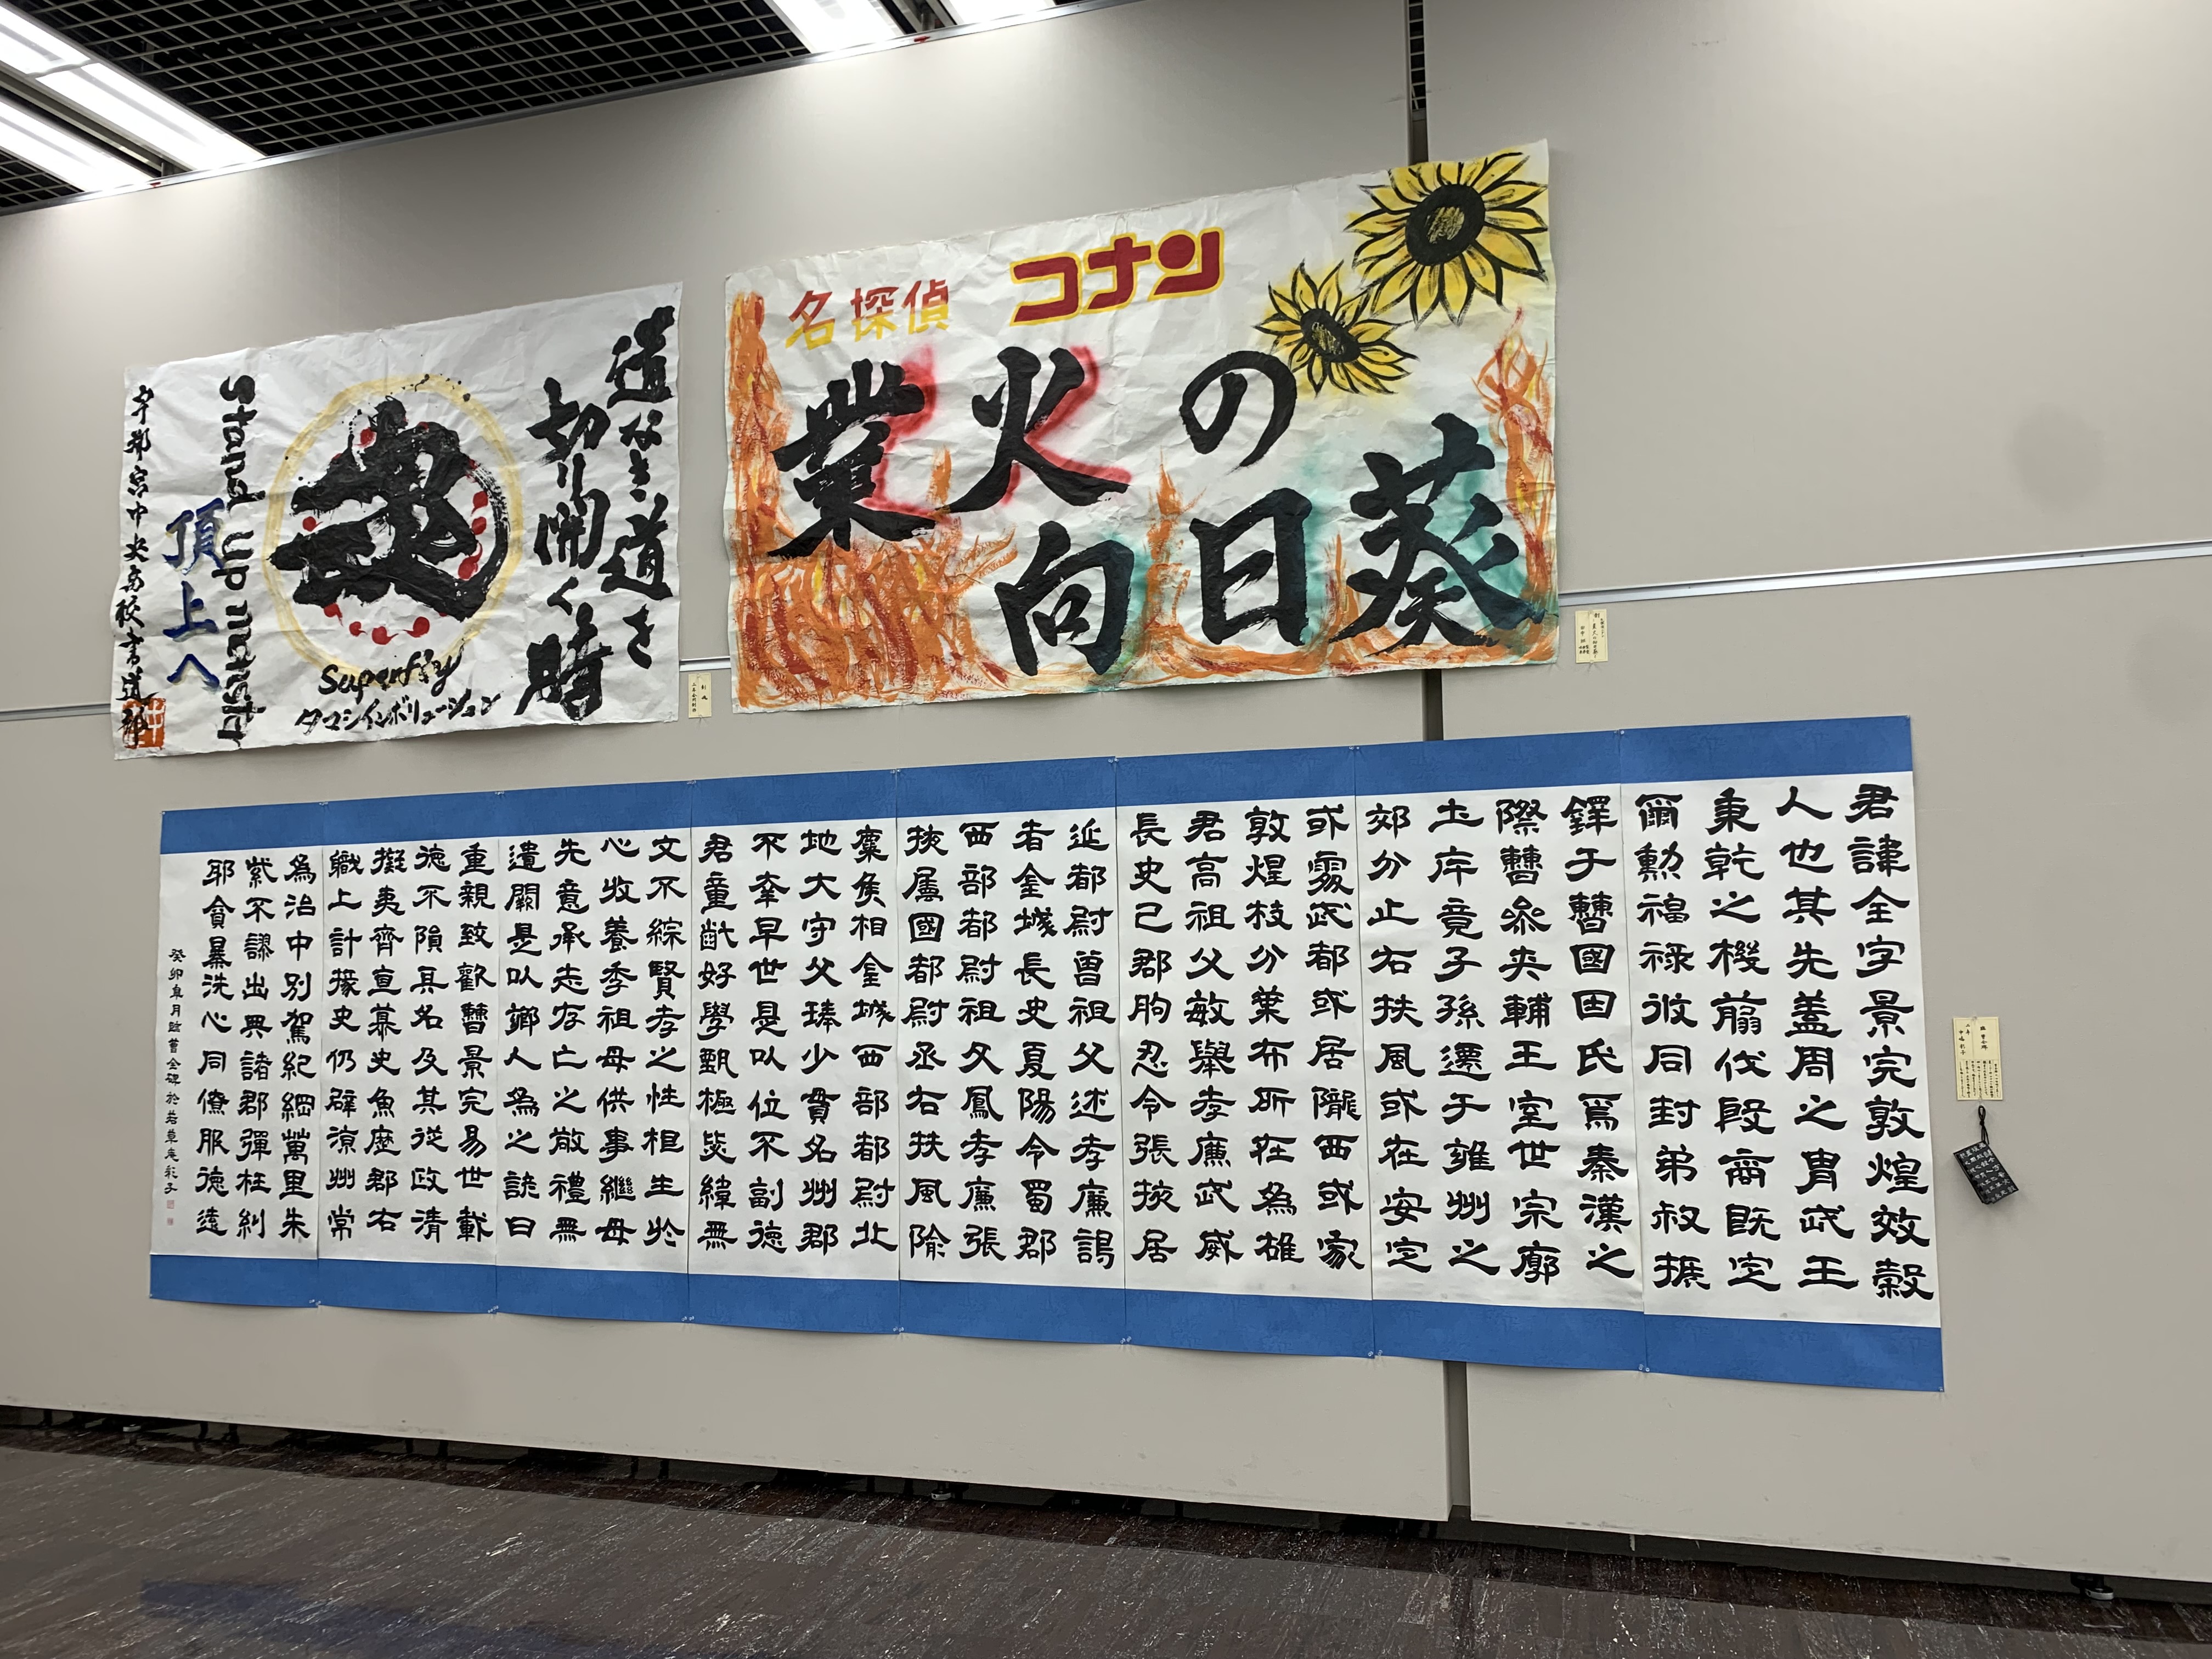 道なき道を
切り開く時
魂
Superfly
タマシイレボリューション
Stand up monster
頂上へ
宇都宮中央高校書道部
名探偵 コナン
業火の
向日葵
君諱全字景完敦煌效穀
人也其先蓋周之冑武王
秉乾之機翦伐殷商既定
爾勲福祿攸同封弟叔振
鐸于曹國因氏焉秦漢之
際曹參夾輔王室世宗廓
土斥竟子孫遷于雍州之
郊分止右扶風或在安定
或處武都或居隴西或家
敦煌枝分葉布所在為雄
君高祖父敏舉孝廉武威
長史巴郡朐忍令張掖居
延都尉曾祖父述孝廉謁
者金城長史夏陽令蜀郡
西部都尉祖父鳳孝廉張
掖屬國都尉丞右扶風隃
麋侯相金城西部都尉北
地大守父琫少貫名州郡
不幸早世是以位不副德
君童齔好學甄極毖緯無
文不綜賢孝之性根生於
心收養季祖母供事繼母
先意承志存亡之敬禮無
遺闕是以鄉人為之諺曰
重親致歡曹景完易世載
德不隕其名及其從政清
擬夷齊直慕史魚歷郡右
職上計掾史仍辟涼州常
為治中別駕紀綱萬里朱
紫不謬出典諸郡彈枉糾
邪貪暴洗心同僚服德遠
癸卯皐月臨曹全碑於若草庵彩子